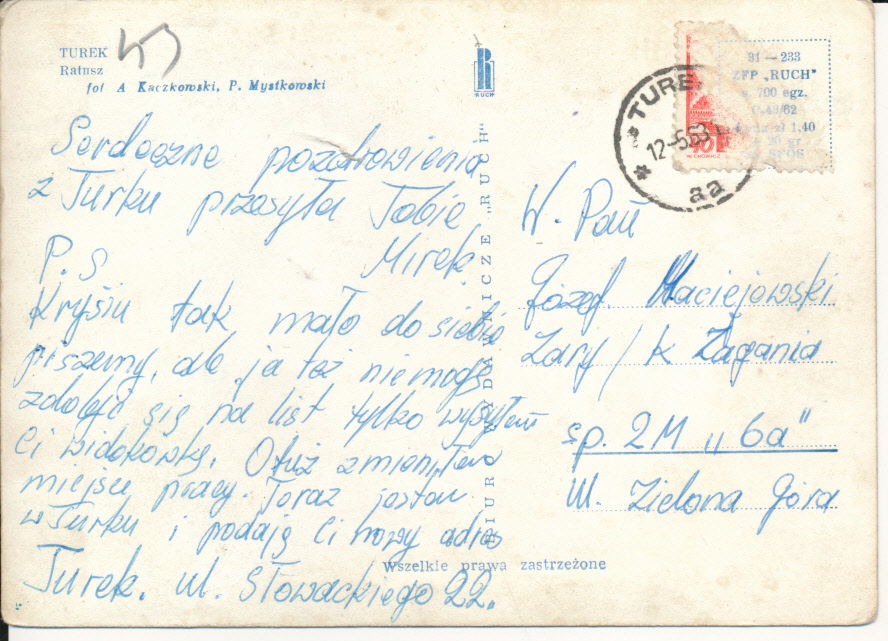 TUREK
Ratusz
fot A Kaczkowski, P. Mystkowski
Serdeczne pozdrowienia
z Turku przesyła Tobie
Mirek
P.S
Krysiu tak mało do siebie
piszemy, ale ja też niemogę
zdobyć się na list tylko wysyłam
Ci widokówkę. Otuż zmieniłem
miejsce pracy. Teraz jestem
w Turku i podaję Ci nowy adres
Turek. ul. Słowackiego 22.
RUCH
BIURO WYDAWNICZE „RUCH"
Wszelkie prawa zastrzeżone
31 — 233
ZFP „RUCH"
n. 700 egz.
zł 1,40
gr
TURE
12-5.63
aa
W. Pan
Józef Maciejowski
Żary / k Żagania
sp. 2M „6a"
W. Zielona Góra